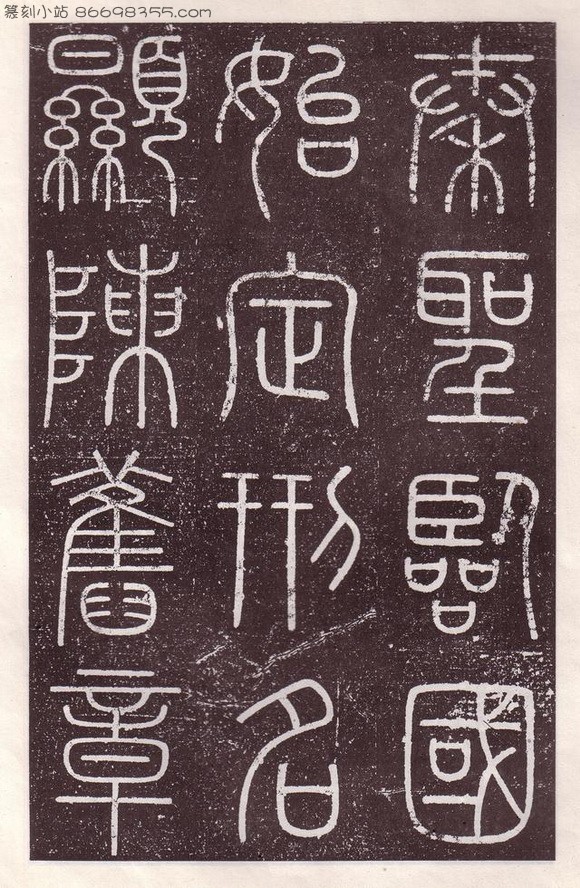 篆刻小站 86698355.com
秦聖臨國
始定刑名
顯陳舊章